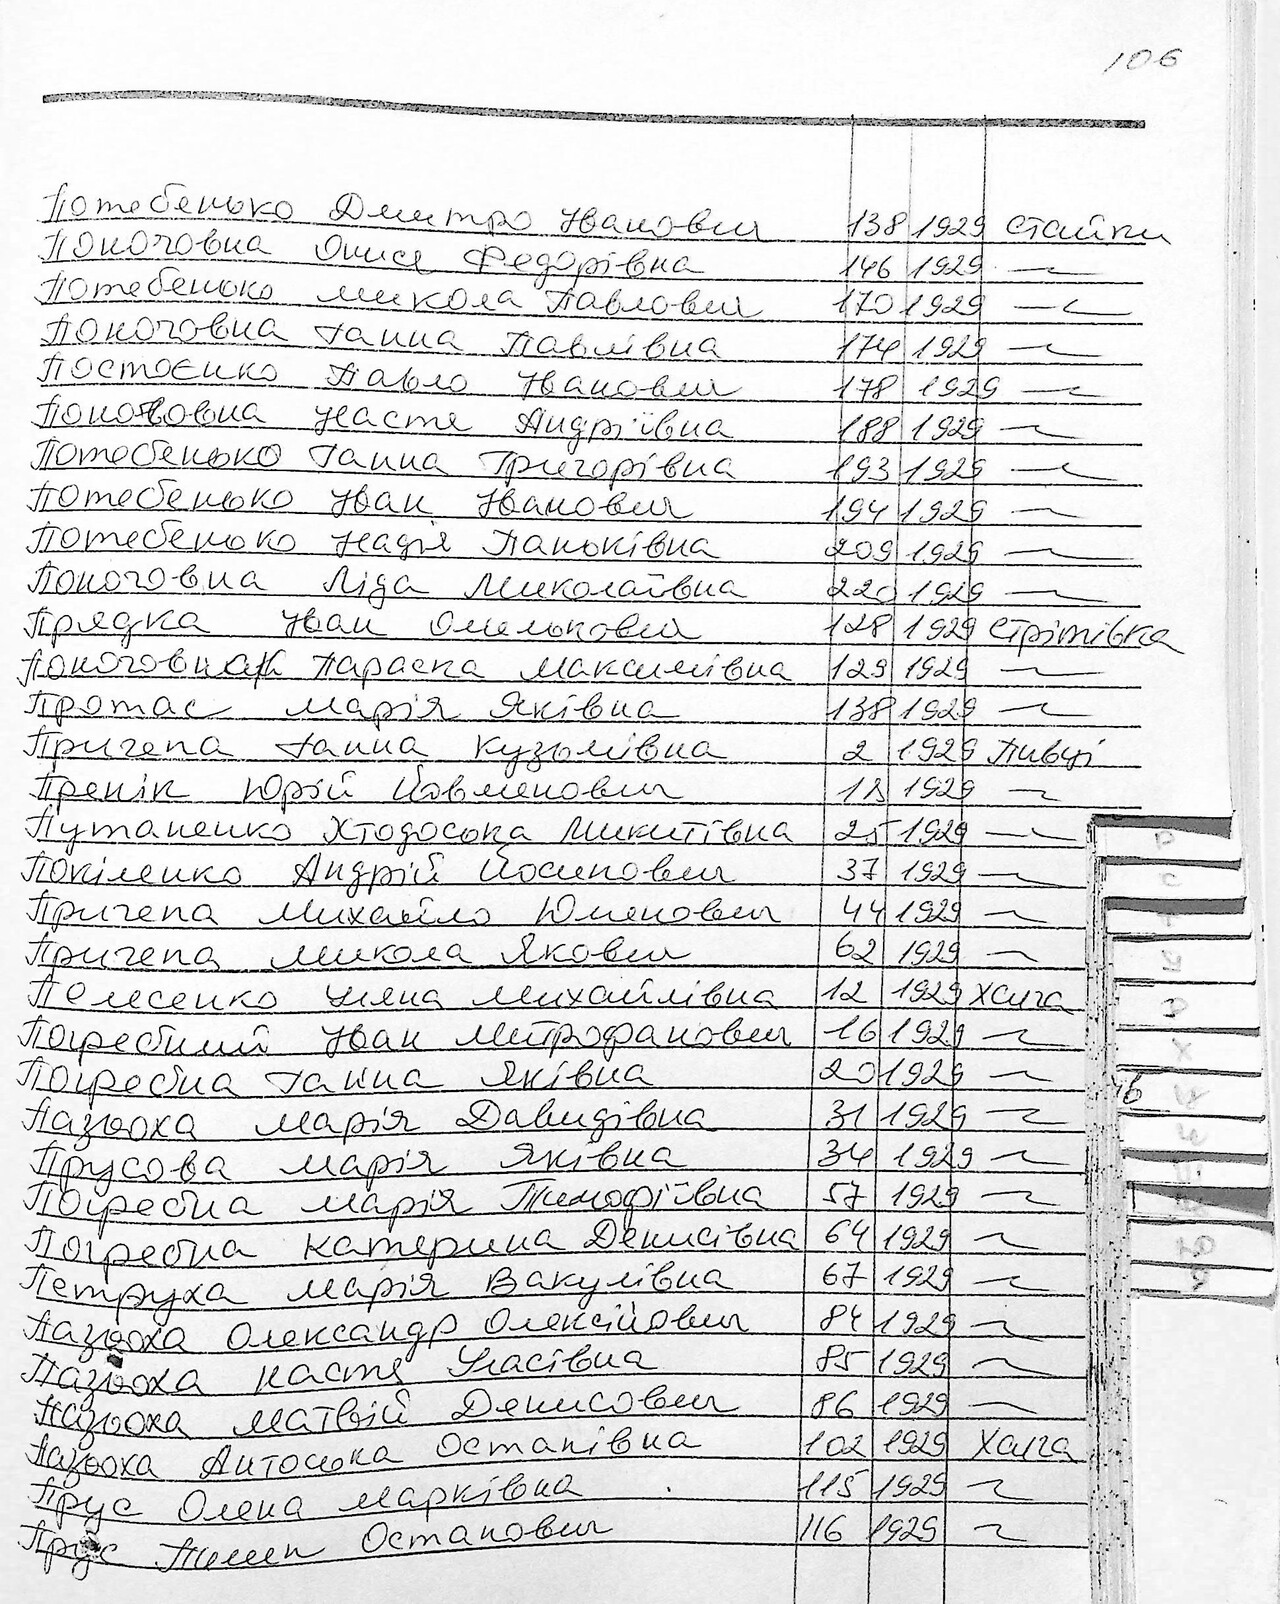 106
Потебенько Дмитро Іванович 138 1929 Стайки
Поночовна Онися Федорівна 146 1929 —
Потебенько Микола Павлович 170 1929 —
Поночовна Ганна Павлівна 174 1929 —
Постоєнко Павло Іванович 178 1929 —
Поночовна Настя Андріївна 188 1929 —
Потебенько Ганна Григорівна 193 1929 —
Потебенько Іван Іванович 194 1929 —
Потебенько Надія Паньківна 209 1929 —
Поночовна Ліда Миколаївна 220 1929 —
Прядка Іван Омелькович 128 1929 Стрітівка
Параска Максимівна 129 1929 —
Протас Марія Яківна 138 1929 —
Причепа Ганна Кузьмівна 2 1929 Півці
Пренік Юрій Йовменович 18 1929 —
Путаненко Хтодоська Микитівна 25 1929 —
Покіленко Андрій Йосипович 37 1929 —
Причепа Михайло Юменович 44 1929 —
Причепа Микола Якович 62 1929 —
Пемсенко Уляна Михайлівна 12 1929 Халча
Погребний Іван Митрофанович 16 1929 —
Погребна Ганна Яківна 20 1929 —
Пазьоха Марія Давидівна 31 1929 —
Прусова Марія Яківна 34 1929 —
Погребна Марія Тимофіївна 57 1929 —
Погребна Катерина Денисівна 64 1929 —
Петруха Марія Вакулівна 67 1929 —
Пазьоха Олександр Олексійович 84 1929 —
Пазьоха Настя Уласівна 85 1929 —
Пазьоха Матвій Денисович 86 1929 —
Пазьоха Антоська Остапівна 102 1929 Халча
Прус Олена Марківна 115 1929 —
Прус Пилип Остапович 116 1929 —